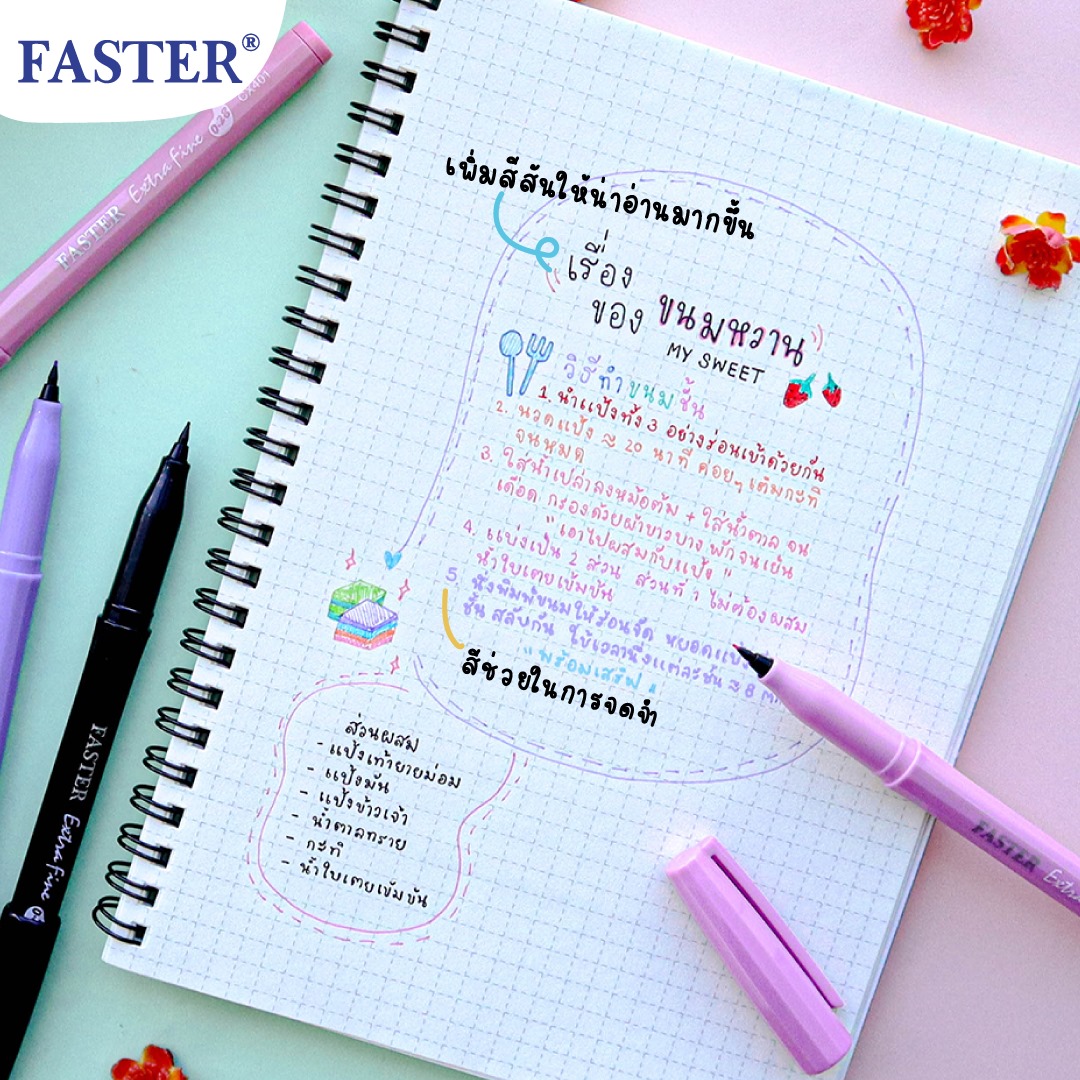 FASTER®
FASTER Extra Fine CX401
เพิ่มสีสันให้น่าอ่านมากขึ้น
เรื่อง
ของ ขนมหวาน
MY SWEET
วิธีทำขนมชั้น
1. นำแป้งทั้ง 3 อย่างร่อนเข้าด้วยกัน
2. นวดแป้ง ≈ 20 นาที ค่อยๆ เติมกะทิ
จนหมด
3. ใส่น้ำเปล่าลงหม้อต้ม + ใส่น้ำตาล จน
เดือด กรองด้วยผ้าขาวบาง พักจนเย็น
"เอาไปผสมกับแป้ง"
4. แบ่งเป็น 2 ส่วน ส่วนที่ 1 ไม่ต้องผสม
น้ำใบเตยเข้มข้น
5. นึ่งพิมพ์ขนมให้ร้อนจัด หยอดแป้ง
ชั้น สลับกัน ใช้เวลานึ่งแต่ละชั้น ≈ 8
"พร้อมเสริฟ"
สีช่วยในการจดจำ
ส่วนผสม
- แป้งเท้ายายม่อม
- แป้งมัน
- แป้งข้าวเจ้า
- น้ำตาลทราย
- กะทิ
- น้ำใบเตยเข้มข้น
FASTER Extra Fine
FASTER Extra